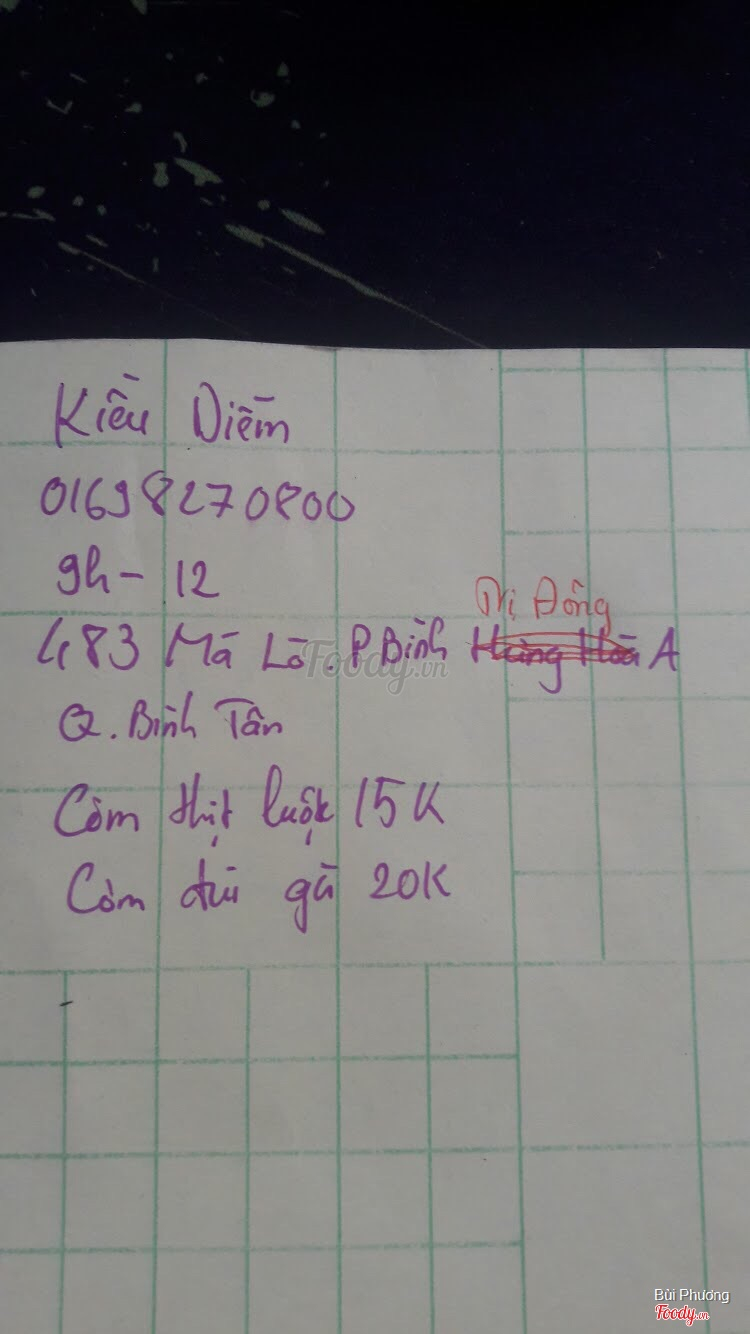 Kiều Diễm
01698270800
9h - 12
Trị Đông
483 Mã Lò. P Bình Hưng Hoà A
Q. Bình Tân
Cơm thịt luộc 15K
Cơm đùi gà 20K
Foody.vn
Bùi Phương
Foody.vn